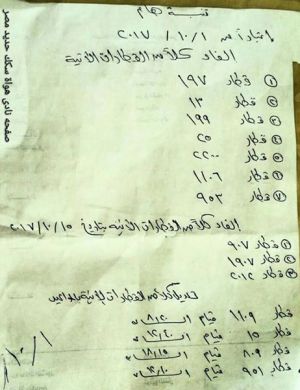 تنبيه هام
إعتباراً من ١ / ١٠ / ٢٠١٧
الغاء كلاً من القطارات الآتية
① قطار ١٩٧
② قطار ١٣
③ قطار ١٩٩
④ قطار ٢٥
⑤ قطار ٢٢٠٠
⑥ قطار ١١٠٦
⑦ قطار ٩٥٣
الغاء كلاً من القطارات الآتية بتاريخ ٢٠١٧/١٠/١٥
① قطار ٩٠٧
② قطار ١٩٠٧
③ قطار ٢٠١٤
كلاً من القطارات الآتية
قطار ١١٠٩ قيام الساعة ٨٫٢٠
قطار ١٥ قيام الساعة
قطار ٨٠٩ قيام الساعة ٨٫١٥
قطار ٩٥١ قيام الساعة
١٠/١
صفحه نادى هواة سكك حديد مصر